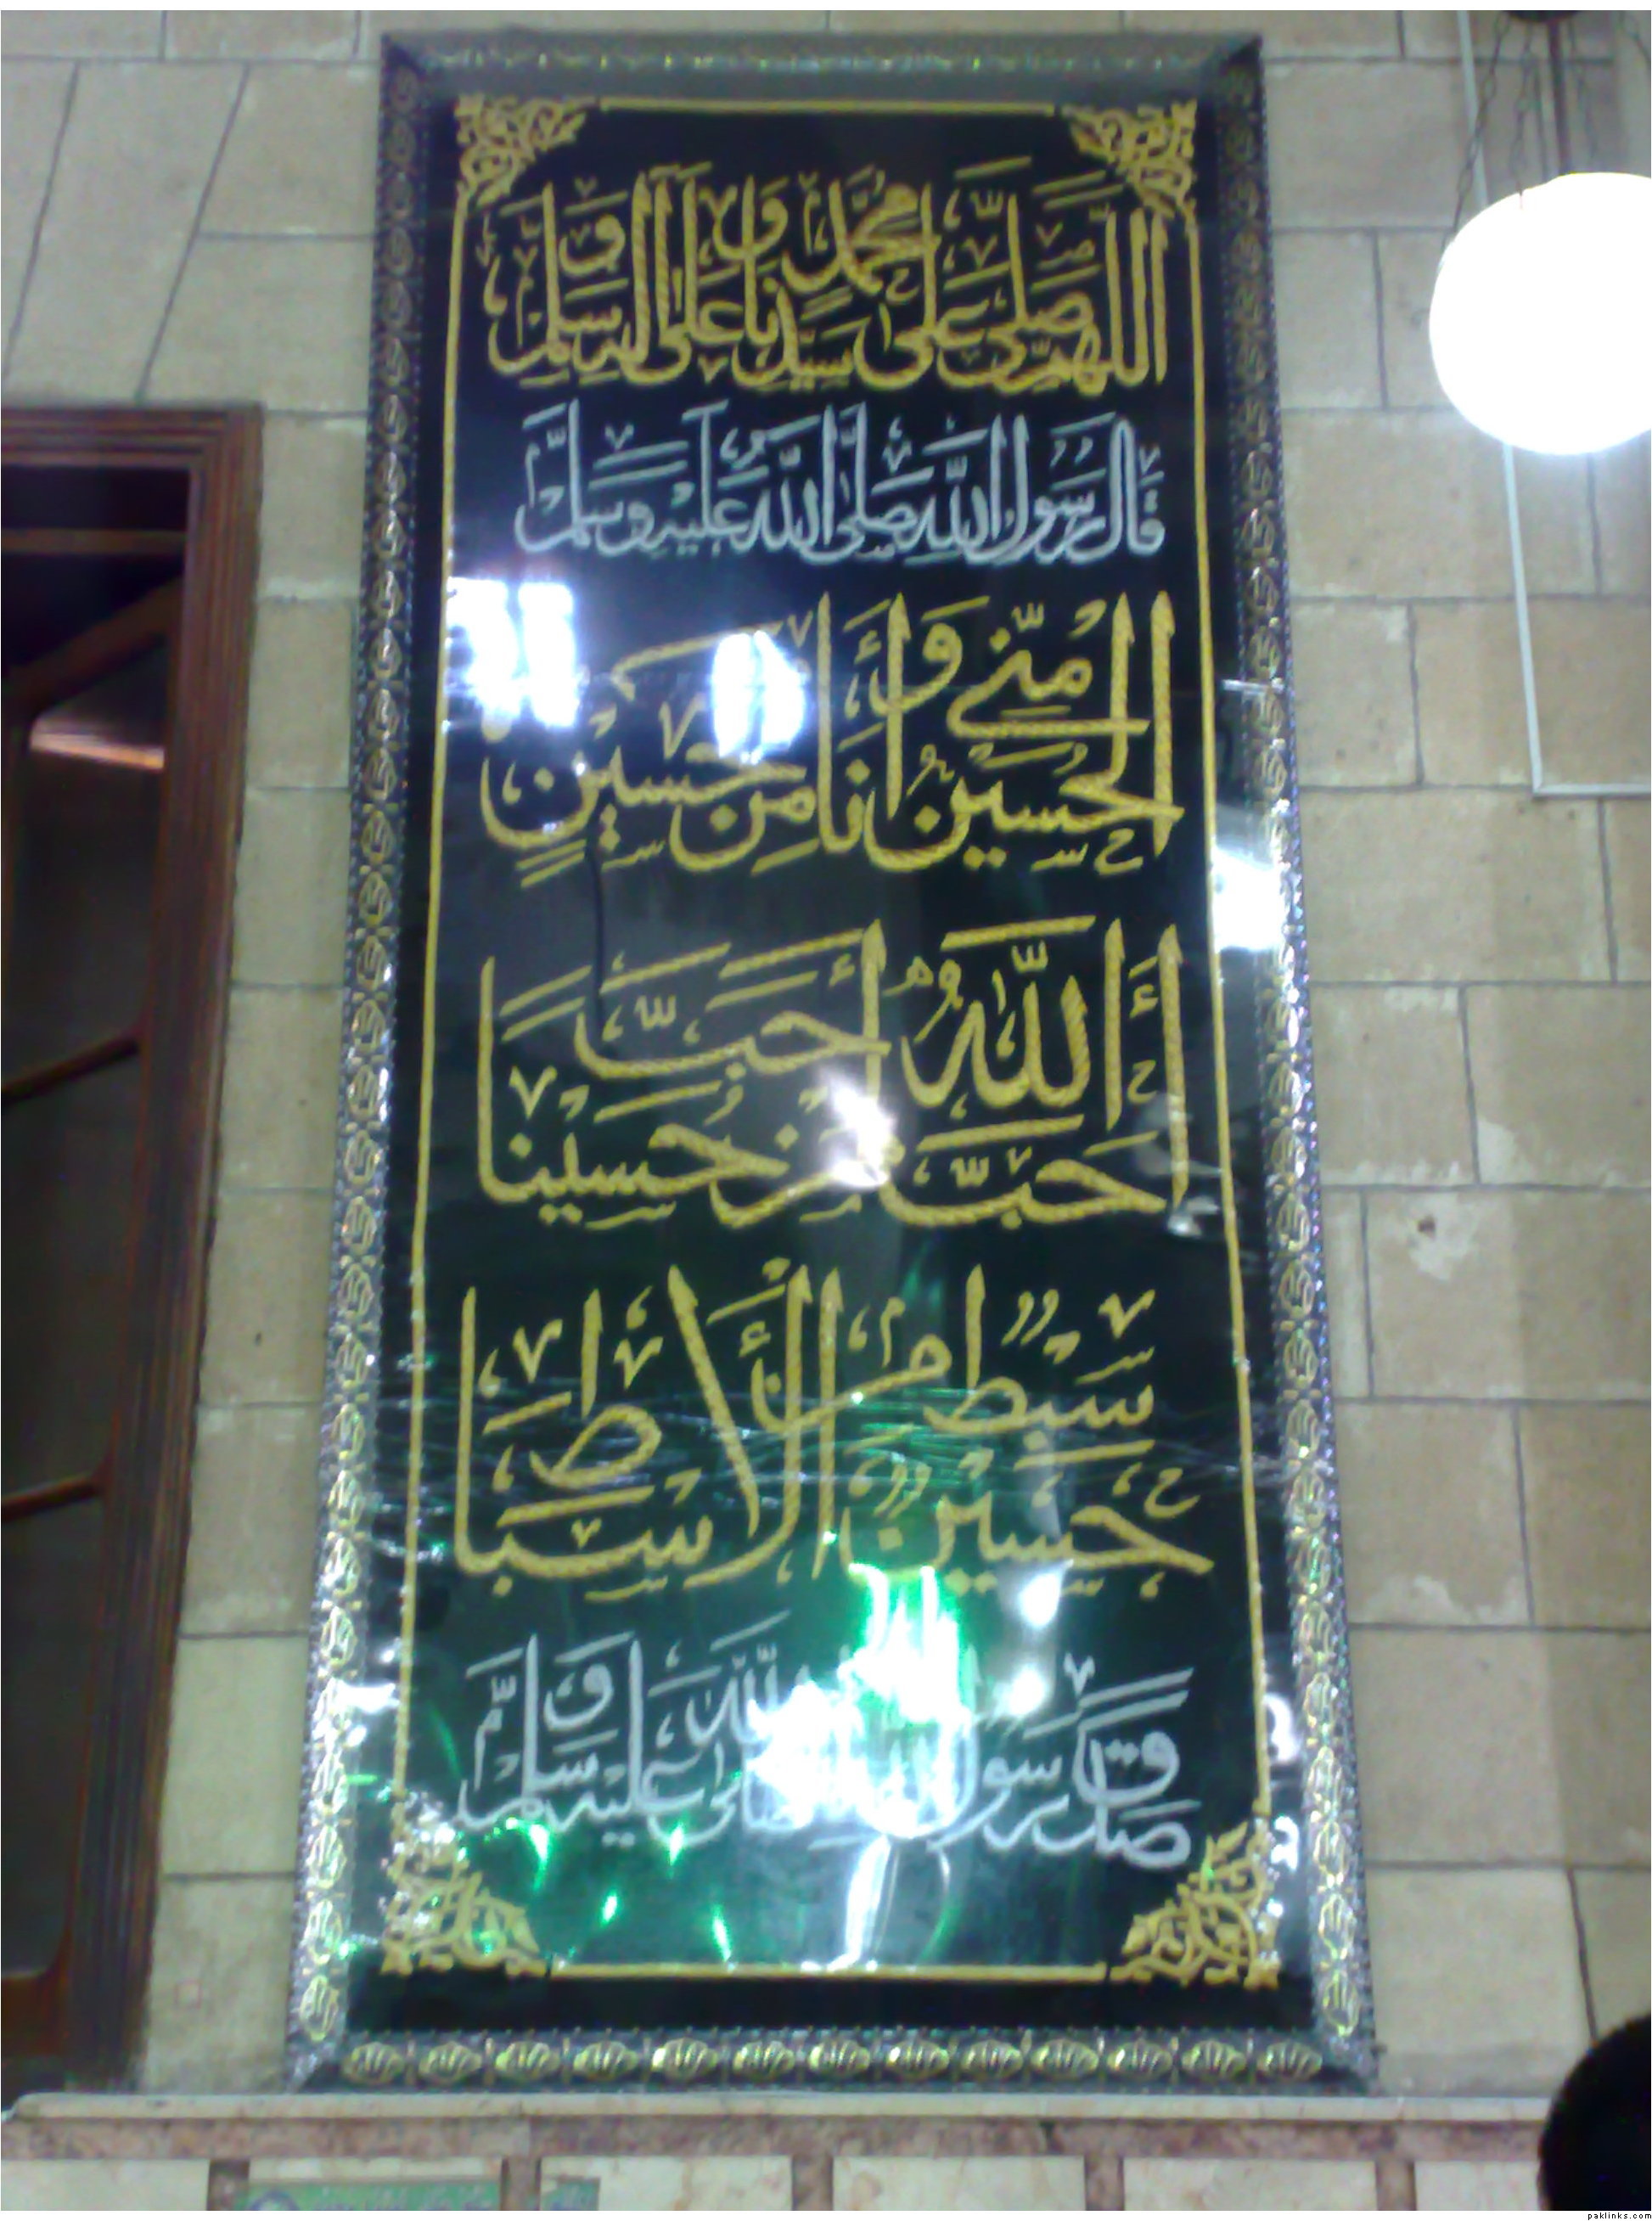 اللهم صلى على سيدنا محمد وعلى آله وسلم
قال رسول الله صلى الله عليه وسلم
الحسين مني وأنا من حسين
أحب الله أحب من حسينا
حسين سبط من الأسباط
صدق رسول الله صلى الله عليه وسلم
paklinks.com